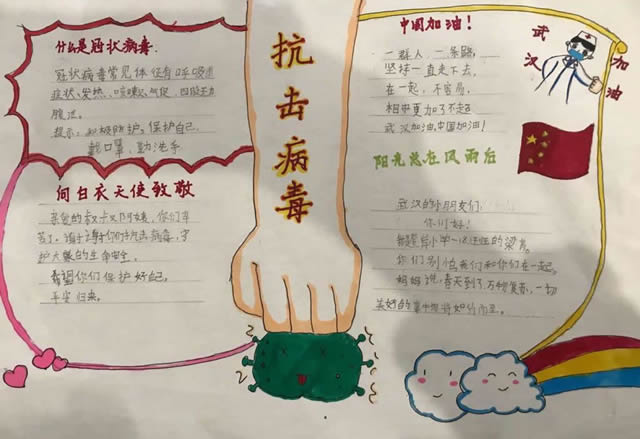 什么是冠状病毒:
冠状病毒常见体征有呼吸道
症状、发热、咳嗽、气促、四肢乏力
腹泄。
提示: 积极防护, 保护自己.
戴口罩, 勤洗手
向白衣天使致敬
亲爱的叔叔阿姨, 你们辛
苦了, 病毒, 守
护大家的生命安全,
希望你们保护好自己,
平安归来。
抗击病毒
中国加油!
一群人, 一条路,
坚持一直走下去,
在一起, 不容易,
相守更加了不起
武汉加油, 中国加油!
武汉
加油
阳光总在风雨后
武汉的小朋友们:
你们好!
小学
你们别怕我们和你们在一起。
妈妈说, 春天到了, 万物复苏, 一切
美好的事情将如约而至。